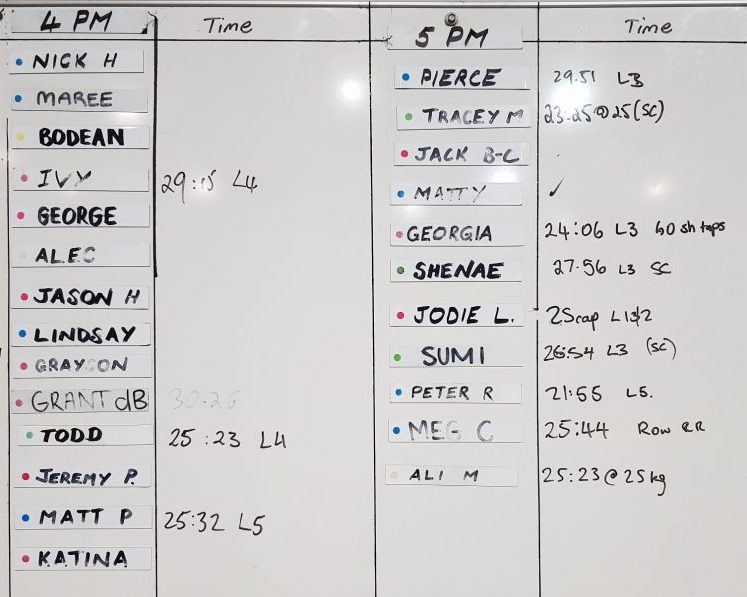 4 PM Time
NICK H
MAREE
BODEAN
IVY 29:15 L4
GEORGE
ALEC
JASON H
LINDSAY
GRAYSON
GRANT dB 30.26
TODD 25:23 L4
JEREMY P.
MATT P 25:32 L5
KATINA
5 PM Time
PIERCE 29.51 L3
TRACEY M 23:25@25(SC)
JACK B-C
MATTY ✓
GEORGIA 24:06 L3 60 sh taps
SHENAE 27.56 L3 SC
JODIE L. 25cap L1&2
SUMI 26:54 L3 (SC)
PETER R 21:55 L5.
MEG C 25:44 Row
ALI M 25:23@25kg